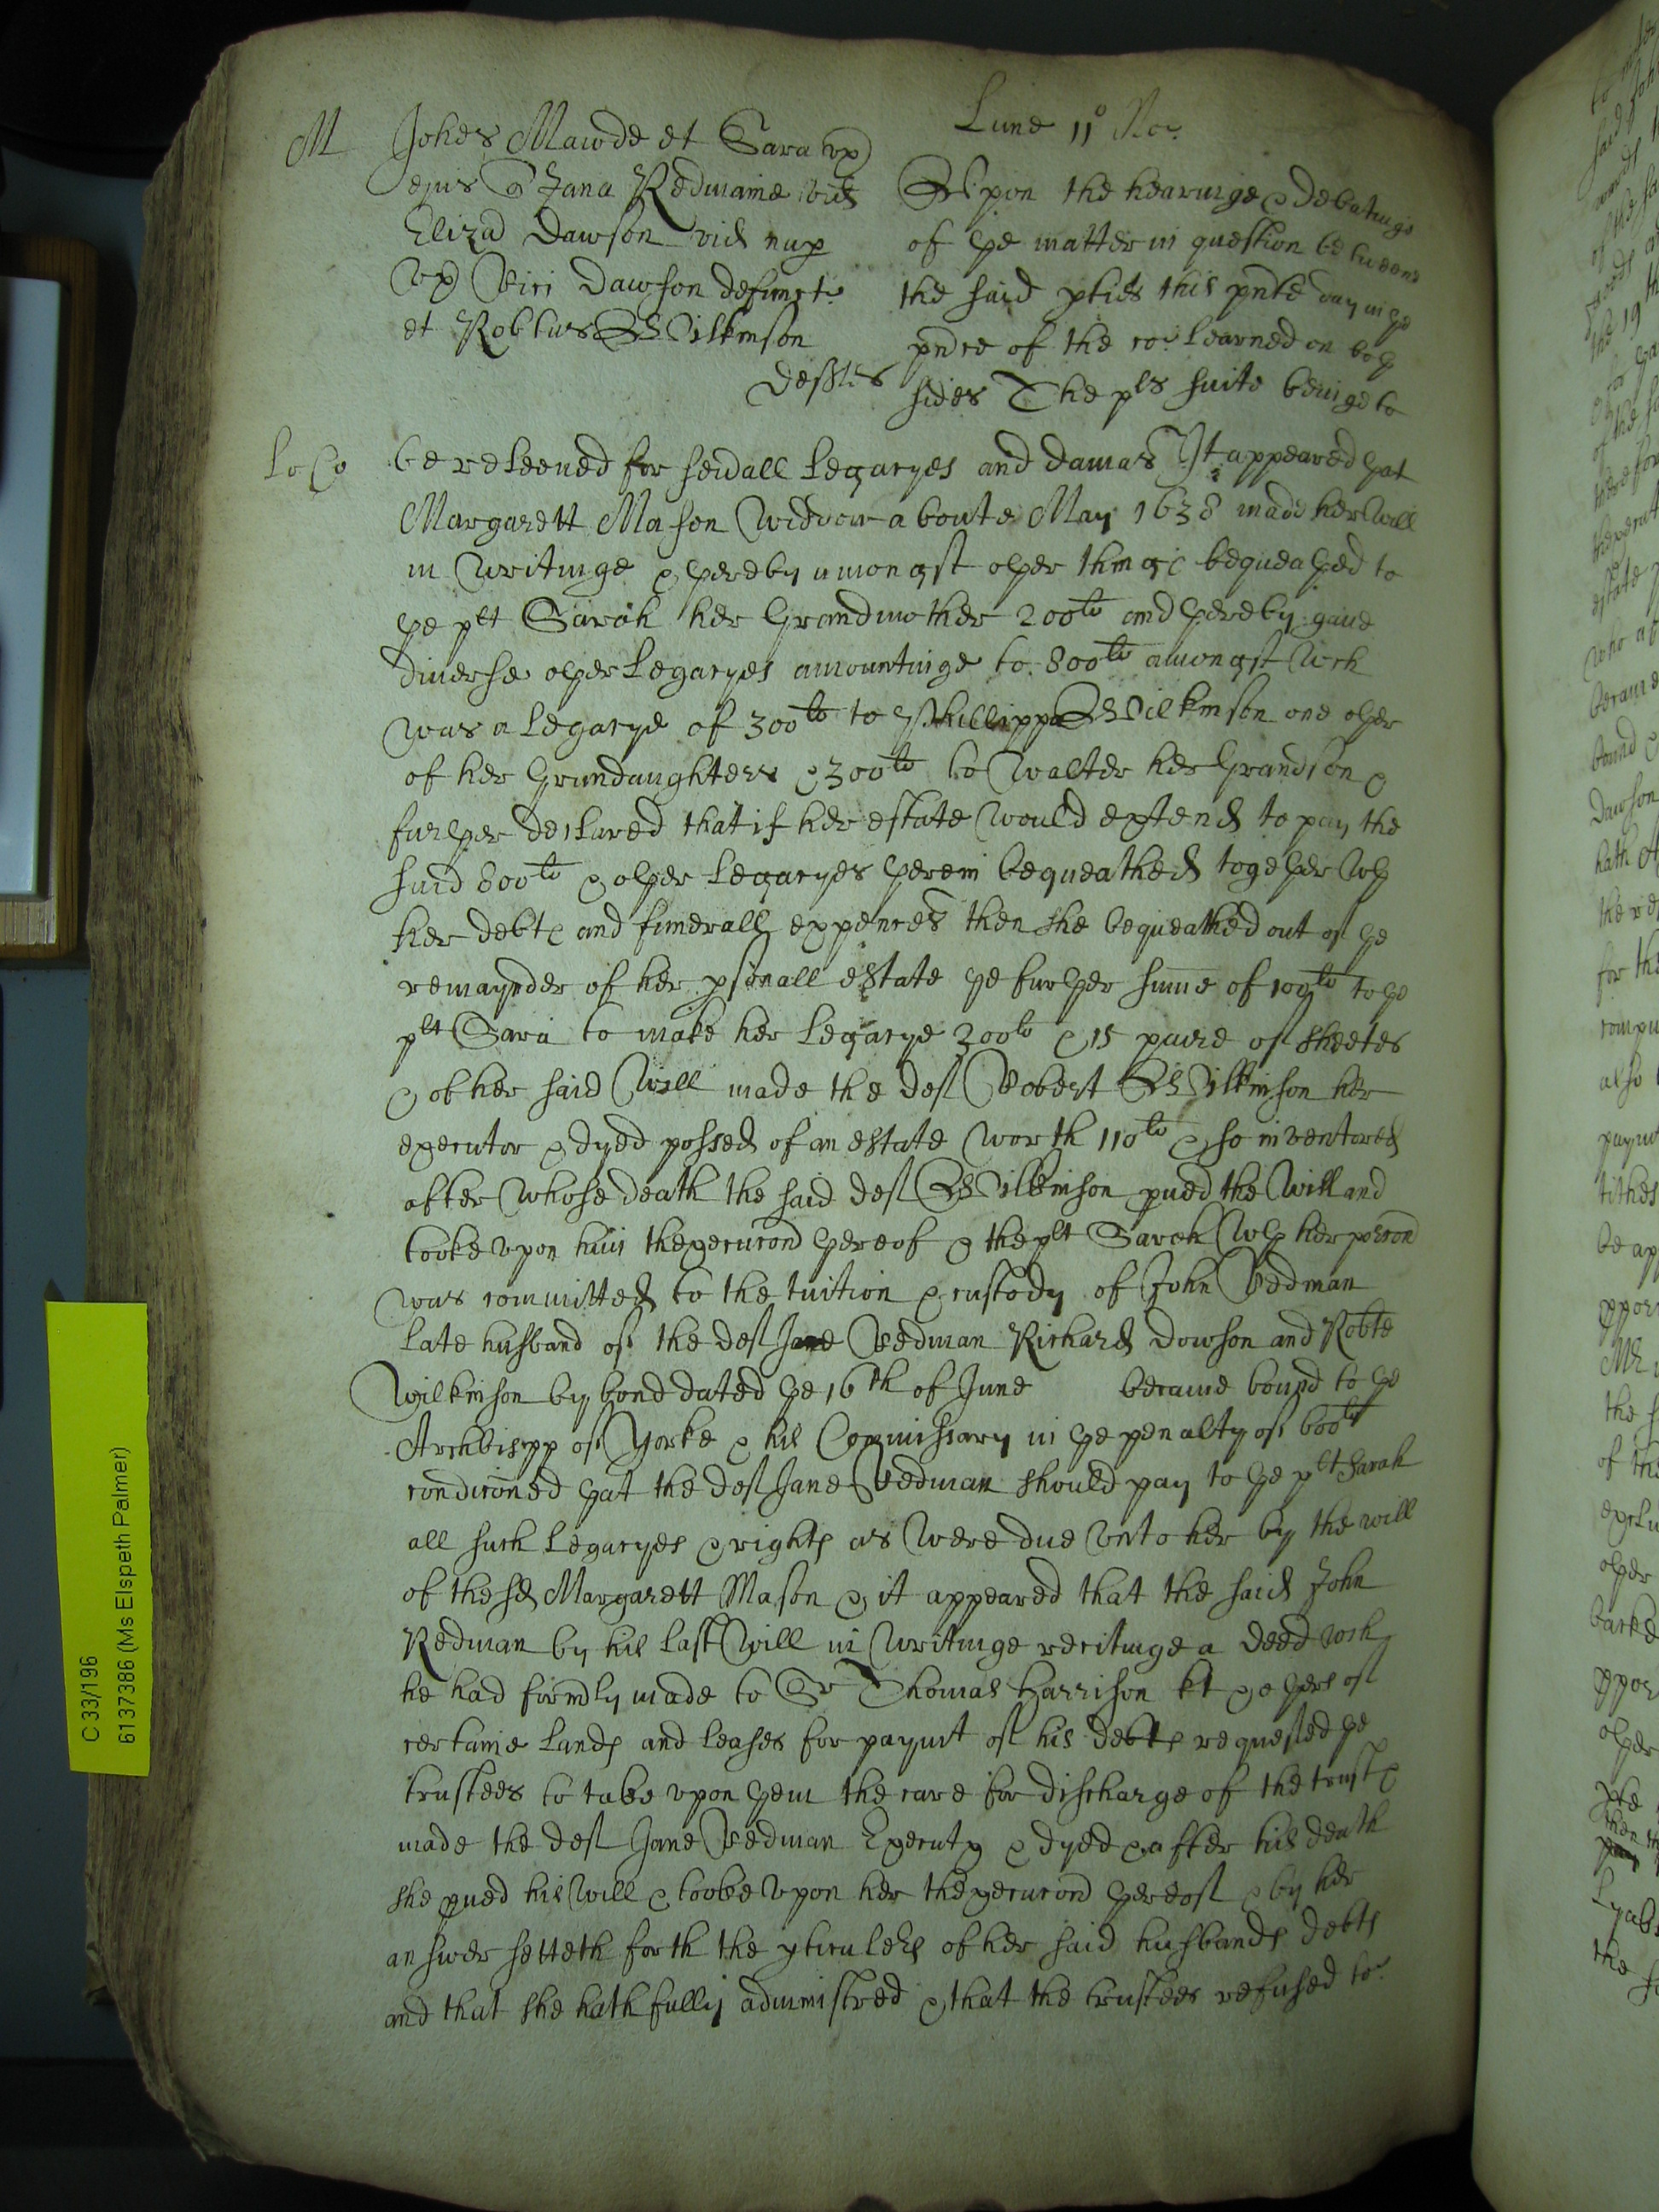 Lune 11o No:
M Johes Mawde et Sara vx
ejus Jana Redmaine vid
Eliza Dawson vid nup
vx Rici Dawson defuncti
et Robtus Wilkinson
deftes
Vpon the hearinge & debatinge
of ye matter in question betweene
the said pties this pnte day in ye
pnce of the co: learned on boy
sides The pls suite beinge to
Lo Co be releeved for sevall Legacyes and damas It appeared yat
Margarett Mason widdow aboute May 1638 made her will
in writinge & yereby amongst oyer things bequeayed to
ye plt Sarah her Grandmother 200li and yereby gave
diverse oyer Legacyes amountinge to 800li amongst wch
was a Legacye of 300li to Phillippa Wilkinson one oyer
of her Grandaughters & 300li to Walter her Grandson &
furyer declared that if her estate would extend to pay the
said 800li & oyer Legacyes yerein bequeathed togeyer wy
her debts and funerall expences then she bequeathed out of ye
remaynder of her psonall estate ye furyer sume of 100li to ye
plt Sara to make her Legacye 300li & 15 paire of sheetes
& of her said will made the deft Robert Wilkinson her
executor & dyed possed of an estate worth 110li & so inventored
after whose death the said deft Wilkinson pued the will and
tooke vpon him thexecucond yereof & the plt Sarah wy her porcond
was committed to the tuition & custody of John Redman
late husband of the deft Jane Redman Richard Dowson and Robte
Wilkinson by bond dated ye 16th of June became bound to ye
Archbispp of Yorke & his Commissary in ye penalty of 600li
condiconed yat the deft Jane Redman should pay to ye plt Sarah
all such Legacyes & rights as were due vnto her by the will
of the sd Margarett Mason & it appeared that the said John
Redman by his last will in writinge recitinge a deed wch
he had formdly made to Sr Thomas Harrison kt & oyers of
certaine lands and leases for paymt of his debts requested ye
trustees to take vpon yem the care for discharge of the trust &
made the deft Jane Redman Executx & dyed & after his death
she pued his will & tooke vpon her thexecucond yereof & by her
answer setteth forth the pticulers of her said husbands debts
and that she hath fully administred & that the trustees refused to
C 33/196
6137386 (Ms Elspeth Palmer)